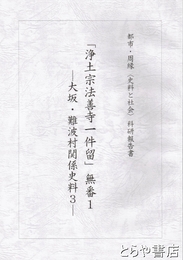 都市・周縁〈史料と社会〉科研報告書
「浄土宗法善寺一件留」無番１
―大坂・難波村関係史料３―
とらや書店